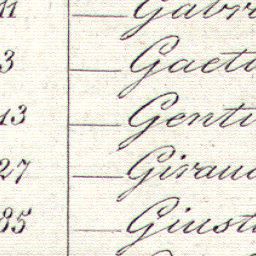 11 — Gabr
3 — Gaett
13 — Genti
27 — Giraud
85 — Giust